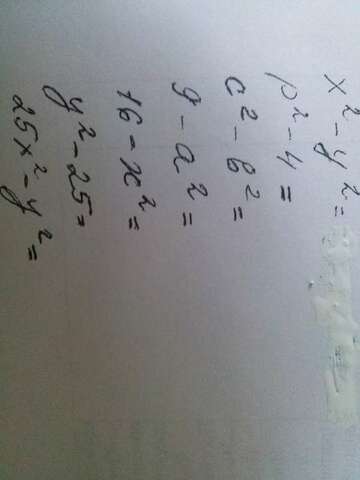 x² - y² =
p² - 4 =
c² - b² =
9 - a² =
16 - x² =
y² - 25 =
25x² - y² =